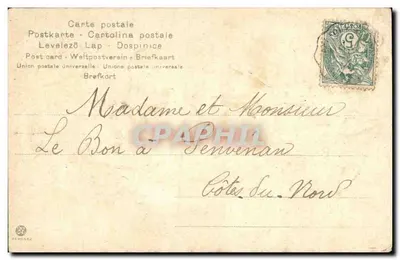 Carte postale
Postkarte - Cartolina postale
Levelező Lap - Dospinice
Post card - Weltpostverein - Briefkaart
Union postale universelle - Unione postale universale
Brefkort
5
Madame et Monsieur
Le Bon à Penvénan
Côtes du Nord
CPAPHIL